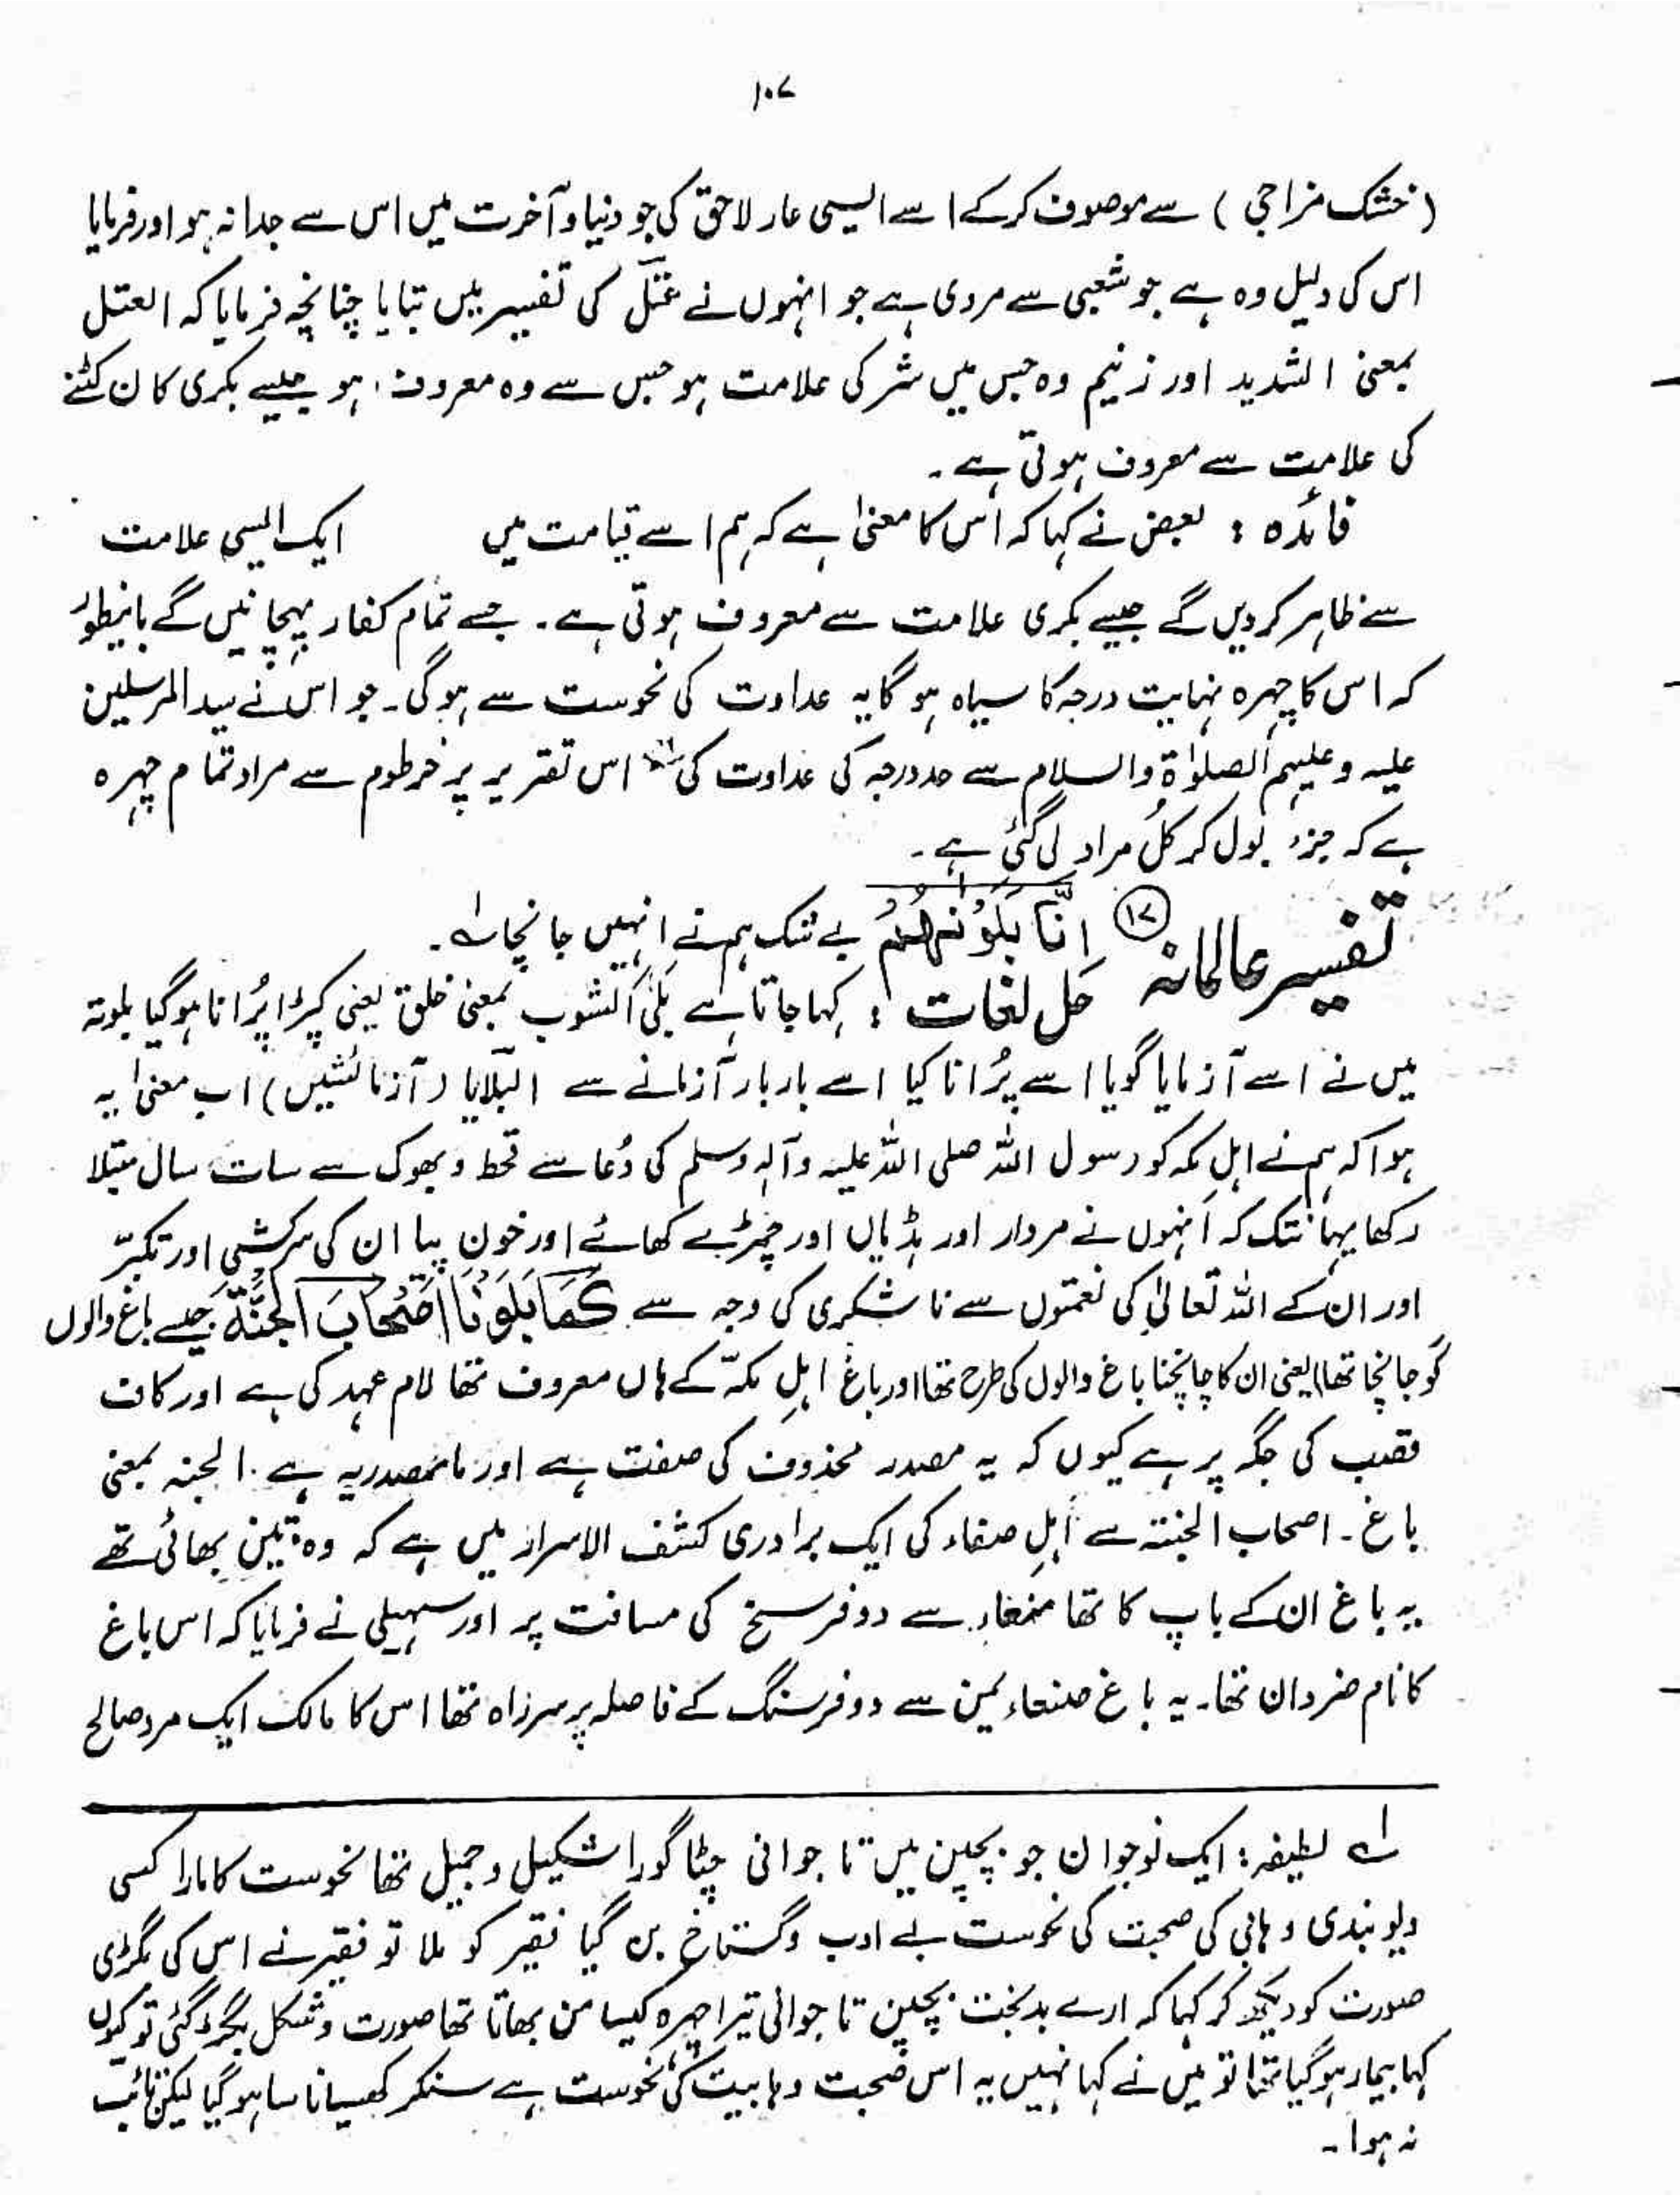 ۱۰۷
(خشک مزاجی) سے موصوف کرکے اسے ایسی عار لاحق کی جو دنیا و آخرت میں اس سے جدا نہ ہو اور فرمایا
اس کی دلیل وہ ہے جو شعبی سے مروی ہے جو انہوں نے عُتُلّ کی تفسیر میں بتایا چنانچہ فرمایا کہ العتل
بمعنی الشدید اور زنیم وہ جس میں شر کی علامت ہو جس سے وہ معروف ہو جیسے بکری کان کٹنے
کی علامت سے معروف ہوتی ہے۔
فائدہ : بعض نے کہا کہ اس کا معنیٰ ہے کہ ہم اسے قیامت میں ایک ایسی علامت
سے ظاہر کردیں گے جیسے بکری علامت سے معروف ہوتی ہے۔ جسے تمام کفار پہچانیں گے بانیطور
کہ اس کا چہرہ نہایت درجہ کا سیاہ ہوگا یہ عداوت کی نحوست سے ہوگی۔ جو اس نے سید المرسلین
علیہ وعلیہم الصلوٰۃ والسلام سے حد درجہ کی عداوت کی اس تقریر پر خرطوم سے مراد تمام چہرہ
ہے کہ جزء بول کر کُل مراد لی گئی ہے۔
تفسیر عالمانہ ⑰ اِنَّا بَلَوْنٰهُمْ بے شک ہم نے انہیں جانچا ہے۔
حل لغات : کہا جاتا ہے بَلَیَ الشوب بمعنی خلق یعنی کپڑا پُرانا ہوگیا بلوتہ
میں نے اسے آزمایا گویا اسے پُرانا کیا اسے بار بار آزمانے سے البَلایا (آزمائشیں) اب معنیٰ یہ
ہوا کہ ہم نے اہلِ مکہ کو رسول اللہ صلی اللہ علیہ وآلہ وسلم کی دُعا سے قحط و بھوک سے سات سال مبتلا
رکھا یہانتک کہ انہوں نے مردار اور ہڈیاں اور چمڑے کھائے اور خون پیا ان کی سرکشی اور تکبّر
اور ان کے اللہ تعالیٰ کی نعمتوں سے ناشکری کی وجہ سے كَمَا بَلَوْنَا اَصْحٰبَ الْجَنَّةِ جیسے باغ والوں
کو جانچا تھا یعنی ان کا جانچنا باغ والوں کی طرح تھا اور باغ اہلِ مکہّ کے ہاں معروف تھا لام عہد کی ہے اور کاف
نصب کی جگہ پر ہے کیوں کہ یہ مصدر محذوف کی صفت ہے اور ما مصدریہ ہے۔ الجنہ بمعنی
باغ۔ اصحاب الجنۃ سے اہلِ صنعاء کی ایک برادری کشف الاسرار میں ہے کہ وہ تین بھائی تھے
یہ باغ ان کے باپ کا تھا صنعاء سے دو فرسخ کی مسافت پر اور سہیلی نے فرمایا کہ اس باغ
کا نام ضردان تھا۔ یہ باغ صنعاء یمن سے دو فرسنگ کے فاصلہ پر سرزاہ تھا اس کا مالک ایک مرد صالح
لے لطیفہ : ایک نوجوان جو بچپن میں تا جوانی چٹا گورا شکیل وجمیل تھا نحوست کا مارا کسی
دیوبندی وہابی کی صحبت کی نحوست بے ادب و گستاخ بن گیا فقیر کو ملا تو فقیر نے اس کی بگڑی
صورت کو دیکھ کر کہا کہ ارے بدبخت بچپن تا جوانی تیرا چہرہ کیسا من بھاتا تھا صورت وشکل بگڑ گئی تو کیوں
کہا بیمار ہوگیا تھا تو میں نے کہا نہیں یہ اس صحبت وہابیت کی نحوست ہے سنکر کھسیانا سا ہوگیا لیکن تائب
نہ ہوا۔